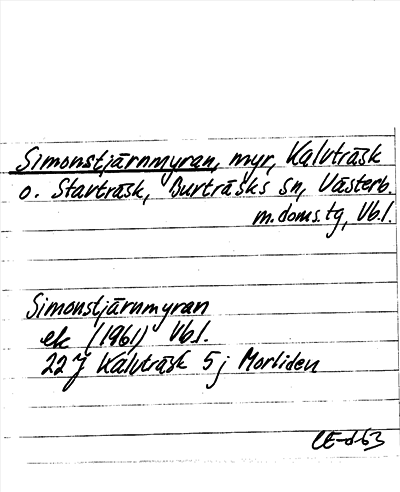 Simonstjärnmyran, myr, Kalvträsk
o. Stavträsk, Burträsks sn, Västerb.
m.doms.tg, Vb.l.
Simonstjärnmyran
ek (1961) Vb.l.
22 J Kalvträsk 5 j Morliden